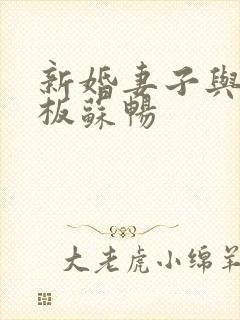 新婚妻子與
板蘇暢
大老虎小绵羊